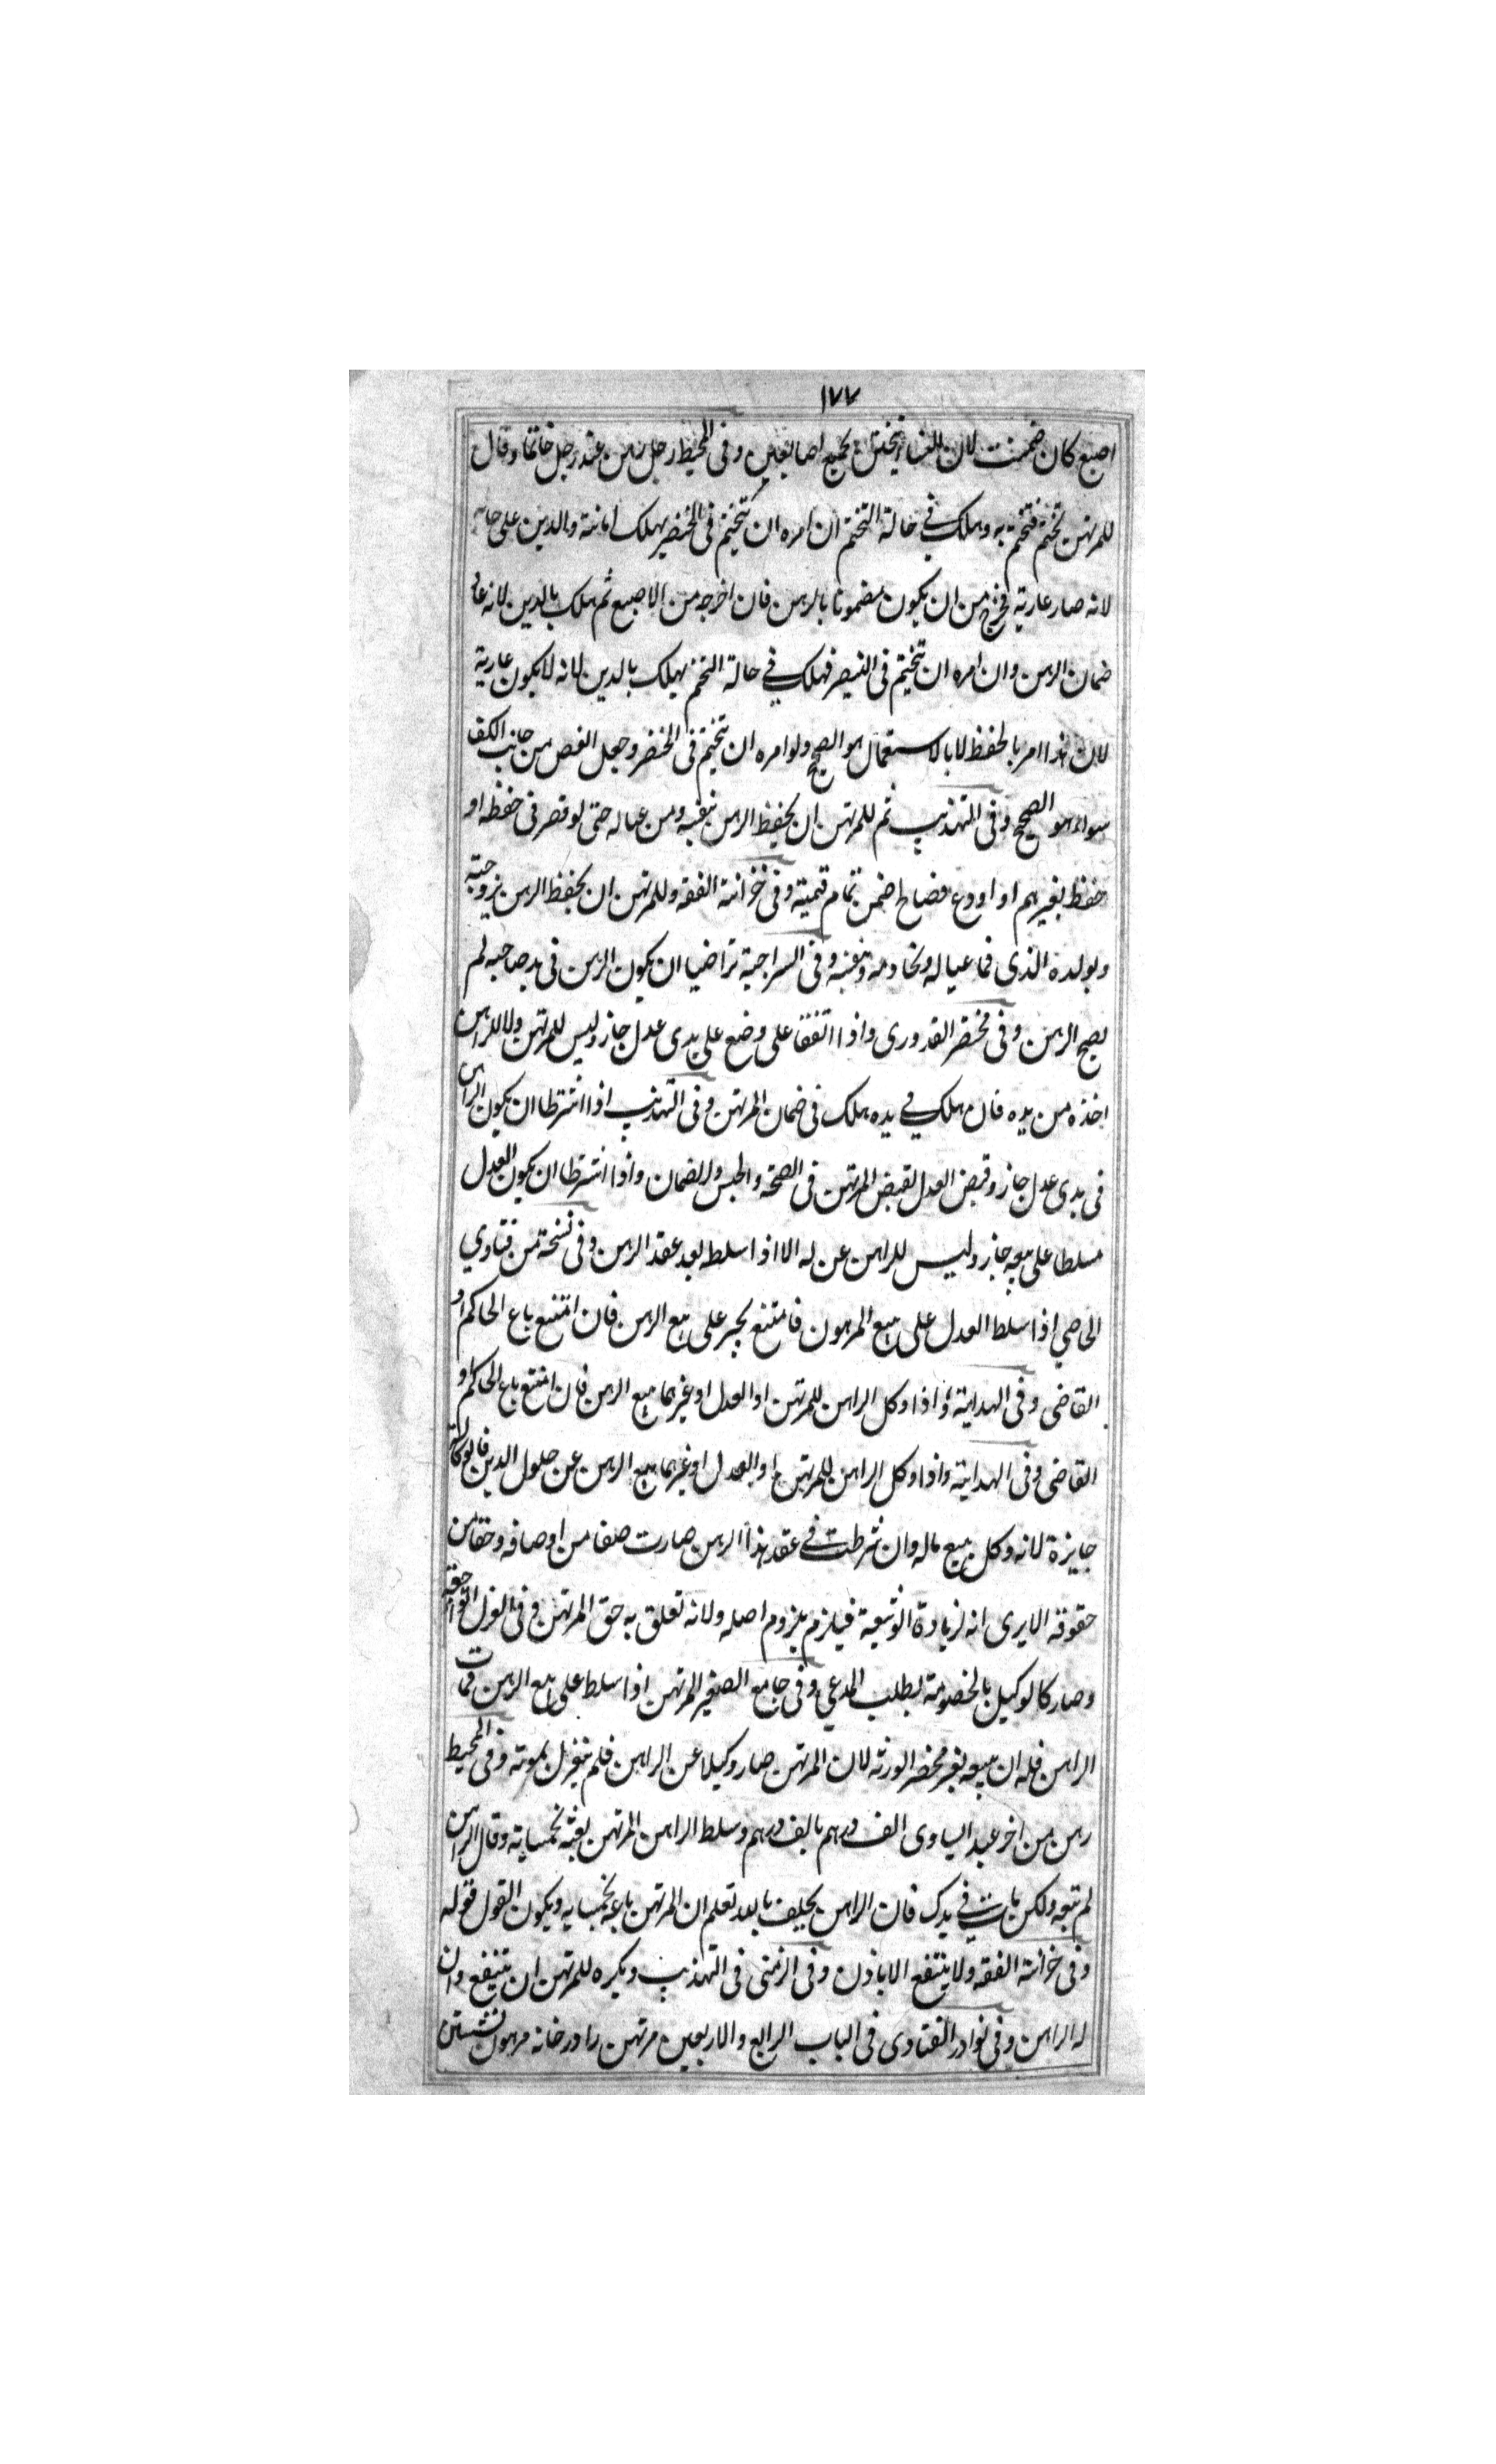 ١٧٧
اصبع كان ضمنت لان النساء يتختمن بجميع اصابعهن وفى المحيط رجل رهن عند رجل خاتما وقال
للمرتهن تختم فتختم به وهلك في حالة التختم ان امره ان يتختم فى الخنصر يهلك امانة والدين على حاله
لانه صار عارية فخرج من ان يكون مضمونا بالرهن فان اخرجه من الاصبع ثم هلك بالدين لانه عاد
ضمان الرهن وان امره ان يتختم فى البنصر فهلك في حالة التختم يهلك بالدين لانه لا يكون عارية
لان هذا امر بالحفظ لا بالاستعمال هو الصحيح ولو امره ان يتختم فى الخنصر وجعل الفص من جانب الكف
سواء هو الصحيح وفى التهذيب ثم للمرتهن ان يحفظ الرهن بنفسه ومن عياله حتى لو قصر فى حفظه او
حفظ بغيرهم او اودع فضاع ضمن تمام قيمته وفى خزانة الفقه وللمرتهن ان يحفظ الرهن بزوجته
وبولده الذى فى عياله وبخادمه وبنفسه وفى السراجية تراضيا ان يكون الرهن فى يد صاحبه لم
يصح الرهن وفى مختصر القدورى واذا اتفقا على وضع على يدى عدل جاز وليس للمرتهن ولا للراهن
اخذه من يده فان هلك في يده هلك فى ضمان المرتهن وفى التهذيب اذا اشترطا ان يكون الراهن
فى يدى عدل جاز وقبض العدل لقبض المرتهن فى الصحة والحبس والضمان واذا اشترطا ان يكون العدل
مسلطا على بيعه جاز وليس للراهن عزله الا اذا سلطه بعد عقد الرهن وفى نسخة من فتاوي
اذا سلط العدل على بيع المرهون فامتنع يجبر على بيع الرهن فان امتنع باع الحاكم او
القاضى وفى الهداية واذا وكل الراهن للمرتهن او العدل او غيرهما ببيع الرهن فان امتنع باع الحاكم او
القاضى وفى الهداية واذا وكل الراهن للمرتهن او العدل او غيرهما ببيع الرهن عن حلول الدين فالوكالة
جايزة لانه وكل ببيع ماله وان شرطت في عقد هذا الرهن صارت صفا من اوصافه وحقا من
حقوقه الا يرى انه لزيادة الوثيقة فيلزم بلزوم اصله ولانه تعلق به حق المرتهن وفى العزل اتواء حقه
وصار كالوكيل بالخصومة بطلب المدعي وفى جامع الصغير المرتهن اذا سلط على بيع الرهن فمات
الراهن فله ان يبيعه بغير محضر الورثه لان المرتهن صار وكيلا عن الراهن فلم ينعزل بموته وفى المحيط
رهن من اخر عبد اليساوى الف درهم بالف درهم وسلط الراهن المرتهن بخمسماية وقال الراهن
لم تبعه ولكن مات في يدك فان الراهن يحلف بالله تعلم ان المرتهن باعه بخمسمايه ويكون القول قوله
وفى خزانة الفقه ولا ينتفع الا باذن وفى الزمنى فى التهذيب ويكره للمرتهن ان ينتفع وان
له الراهن وفى نوادر الفتاوى فى الباب الرابع والاربعين مرتهن را در خانه مرهون نشستن